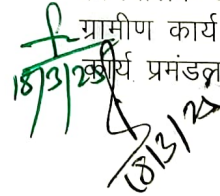 ग्रामीण कार्य
कार्य प्रमंडल
18/3/25
18/3/25